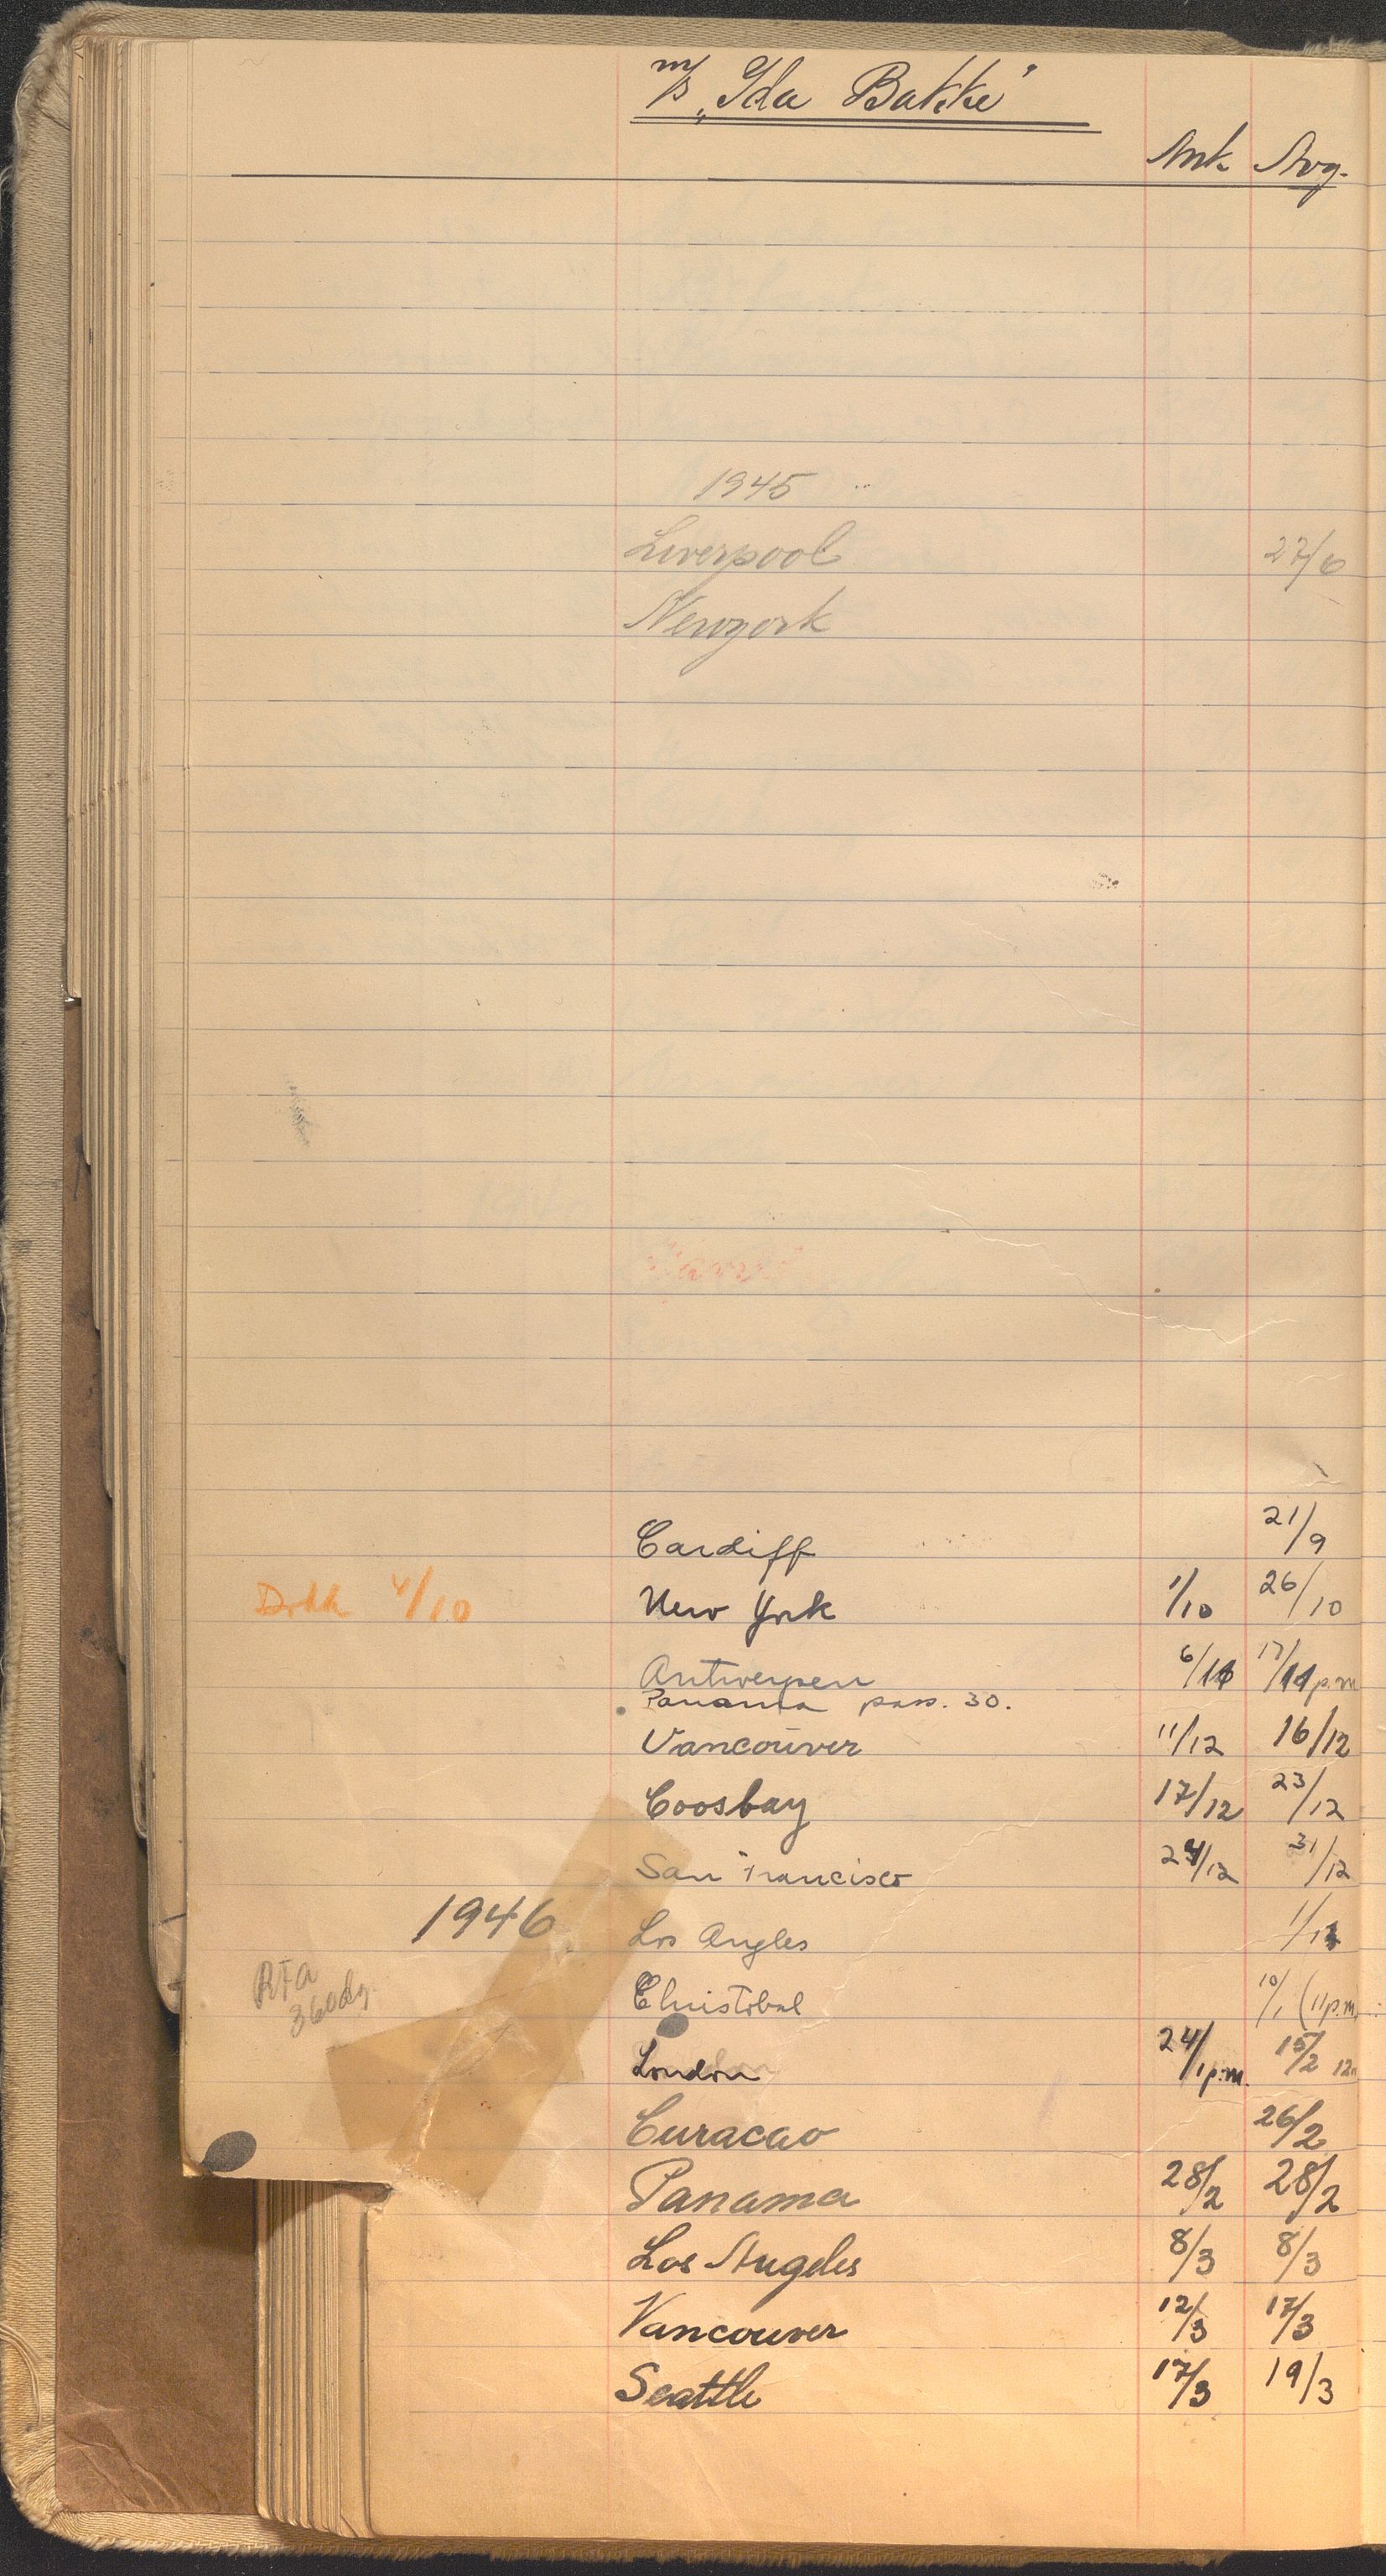 m/s "Ida Bakke"
Ank. Avg.
1945
Liverpool 27/6
Newyork
Cardiff 21/9
Dokk 4/10 New York 1/10 26/10
Antwerpen 6/11 17/11 p.m
Panama pass. 30.
Vancouver 11/12 16/12
Coosbay 17/12 23/12
San Francisco 24/12 31/12
1946 Los Angles 1/1
RFA Christobal 10/1 (11 p.m.
360dg.
London 24/1 p.m. 15/2 12
Curacao 26/2
Panama 28/2 28/2
Los Angeles 8/3 8/3
Vancouver 12/3 17/3
Seattle 17/3 19/3